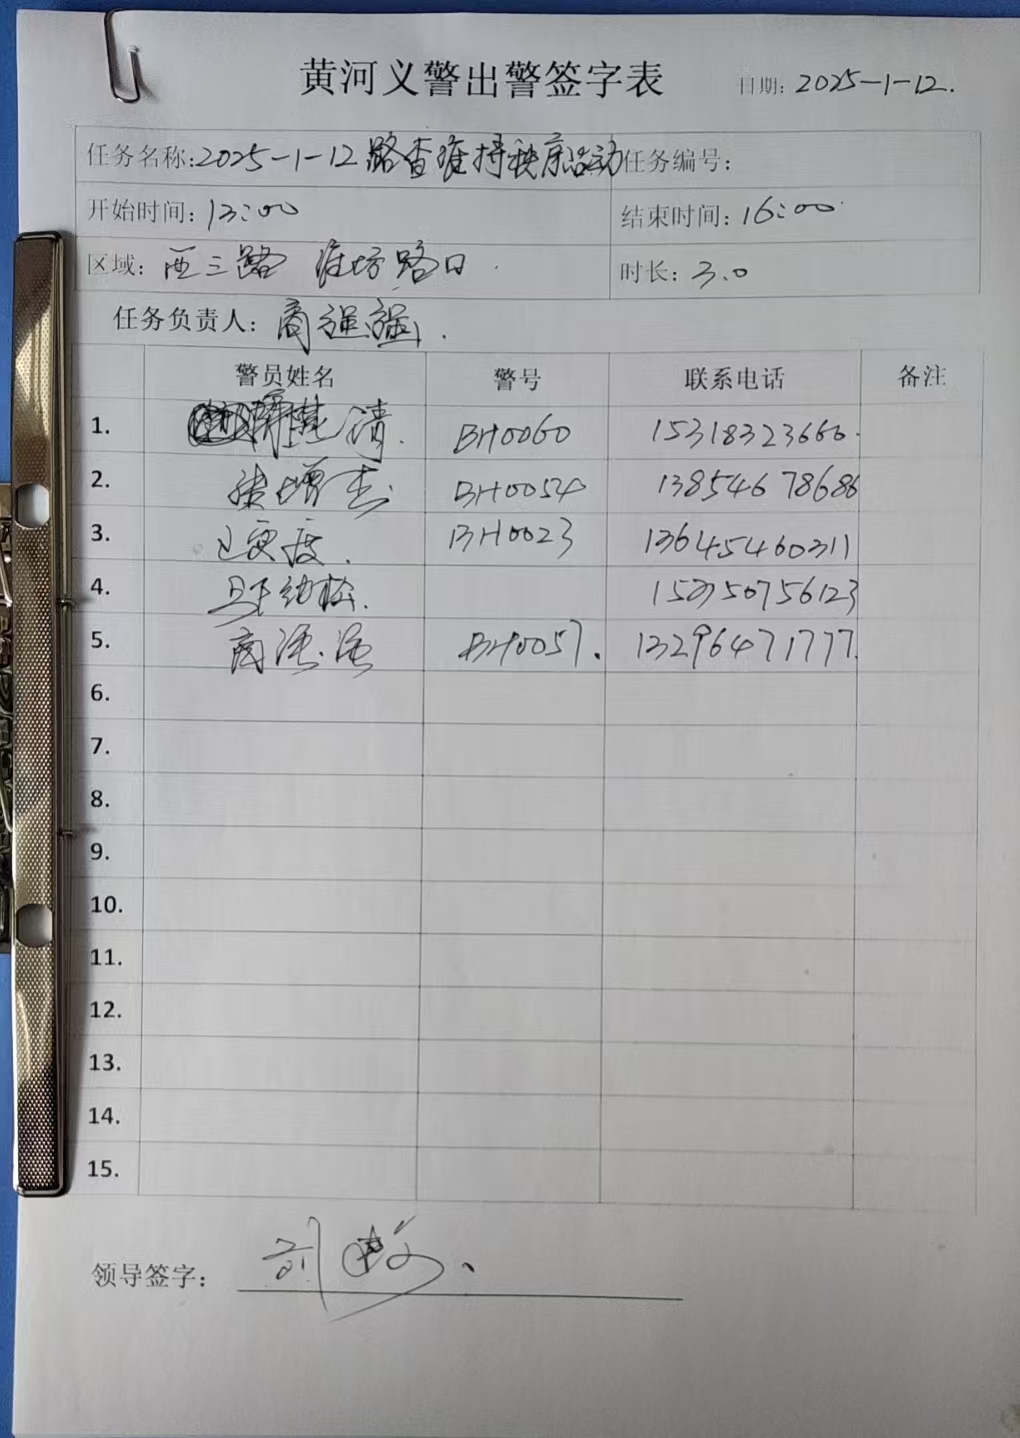 黄河义警出警签字表
日期: 2025-1-12.
任务名称:2025-1-12 路查维持秩序活动 任务编号:
开始时间: 13:00 结束时间: 16:00
区域: 西三路 潍坊路口. 时长: 3.0
任务负责人: 商强强.
警员姓名 警号 联系电话 备注
1. 清. BH0060 15318323666.
2. 增杰. BH0054 13854678686
3. BH0023 13645460311
4. 153150756123
5. 商强强 BH0057. 13296471777.
6.
7.
8.
9.
10.
11.
12.
13.
14.
15.
领导签字: 刘